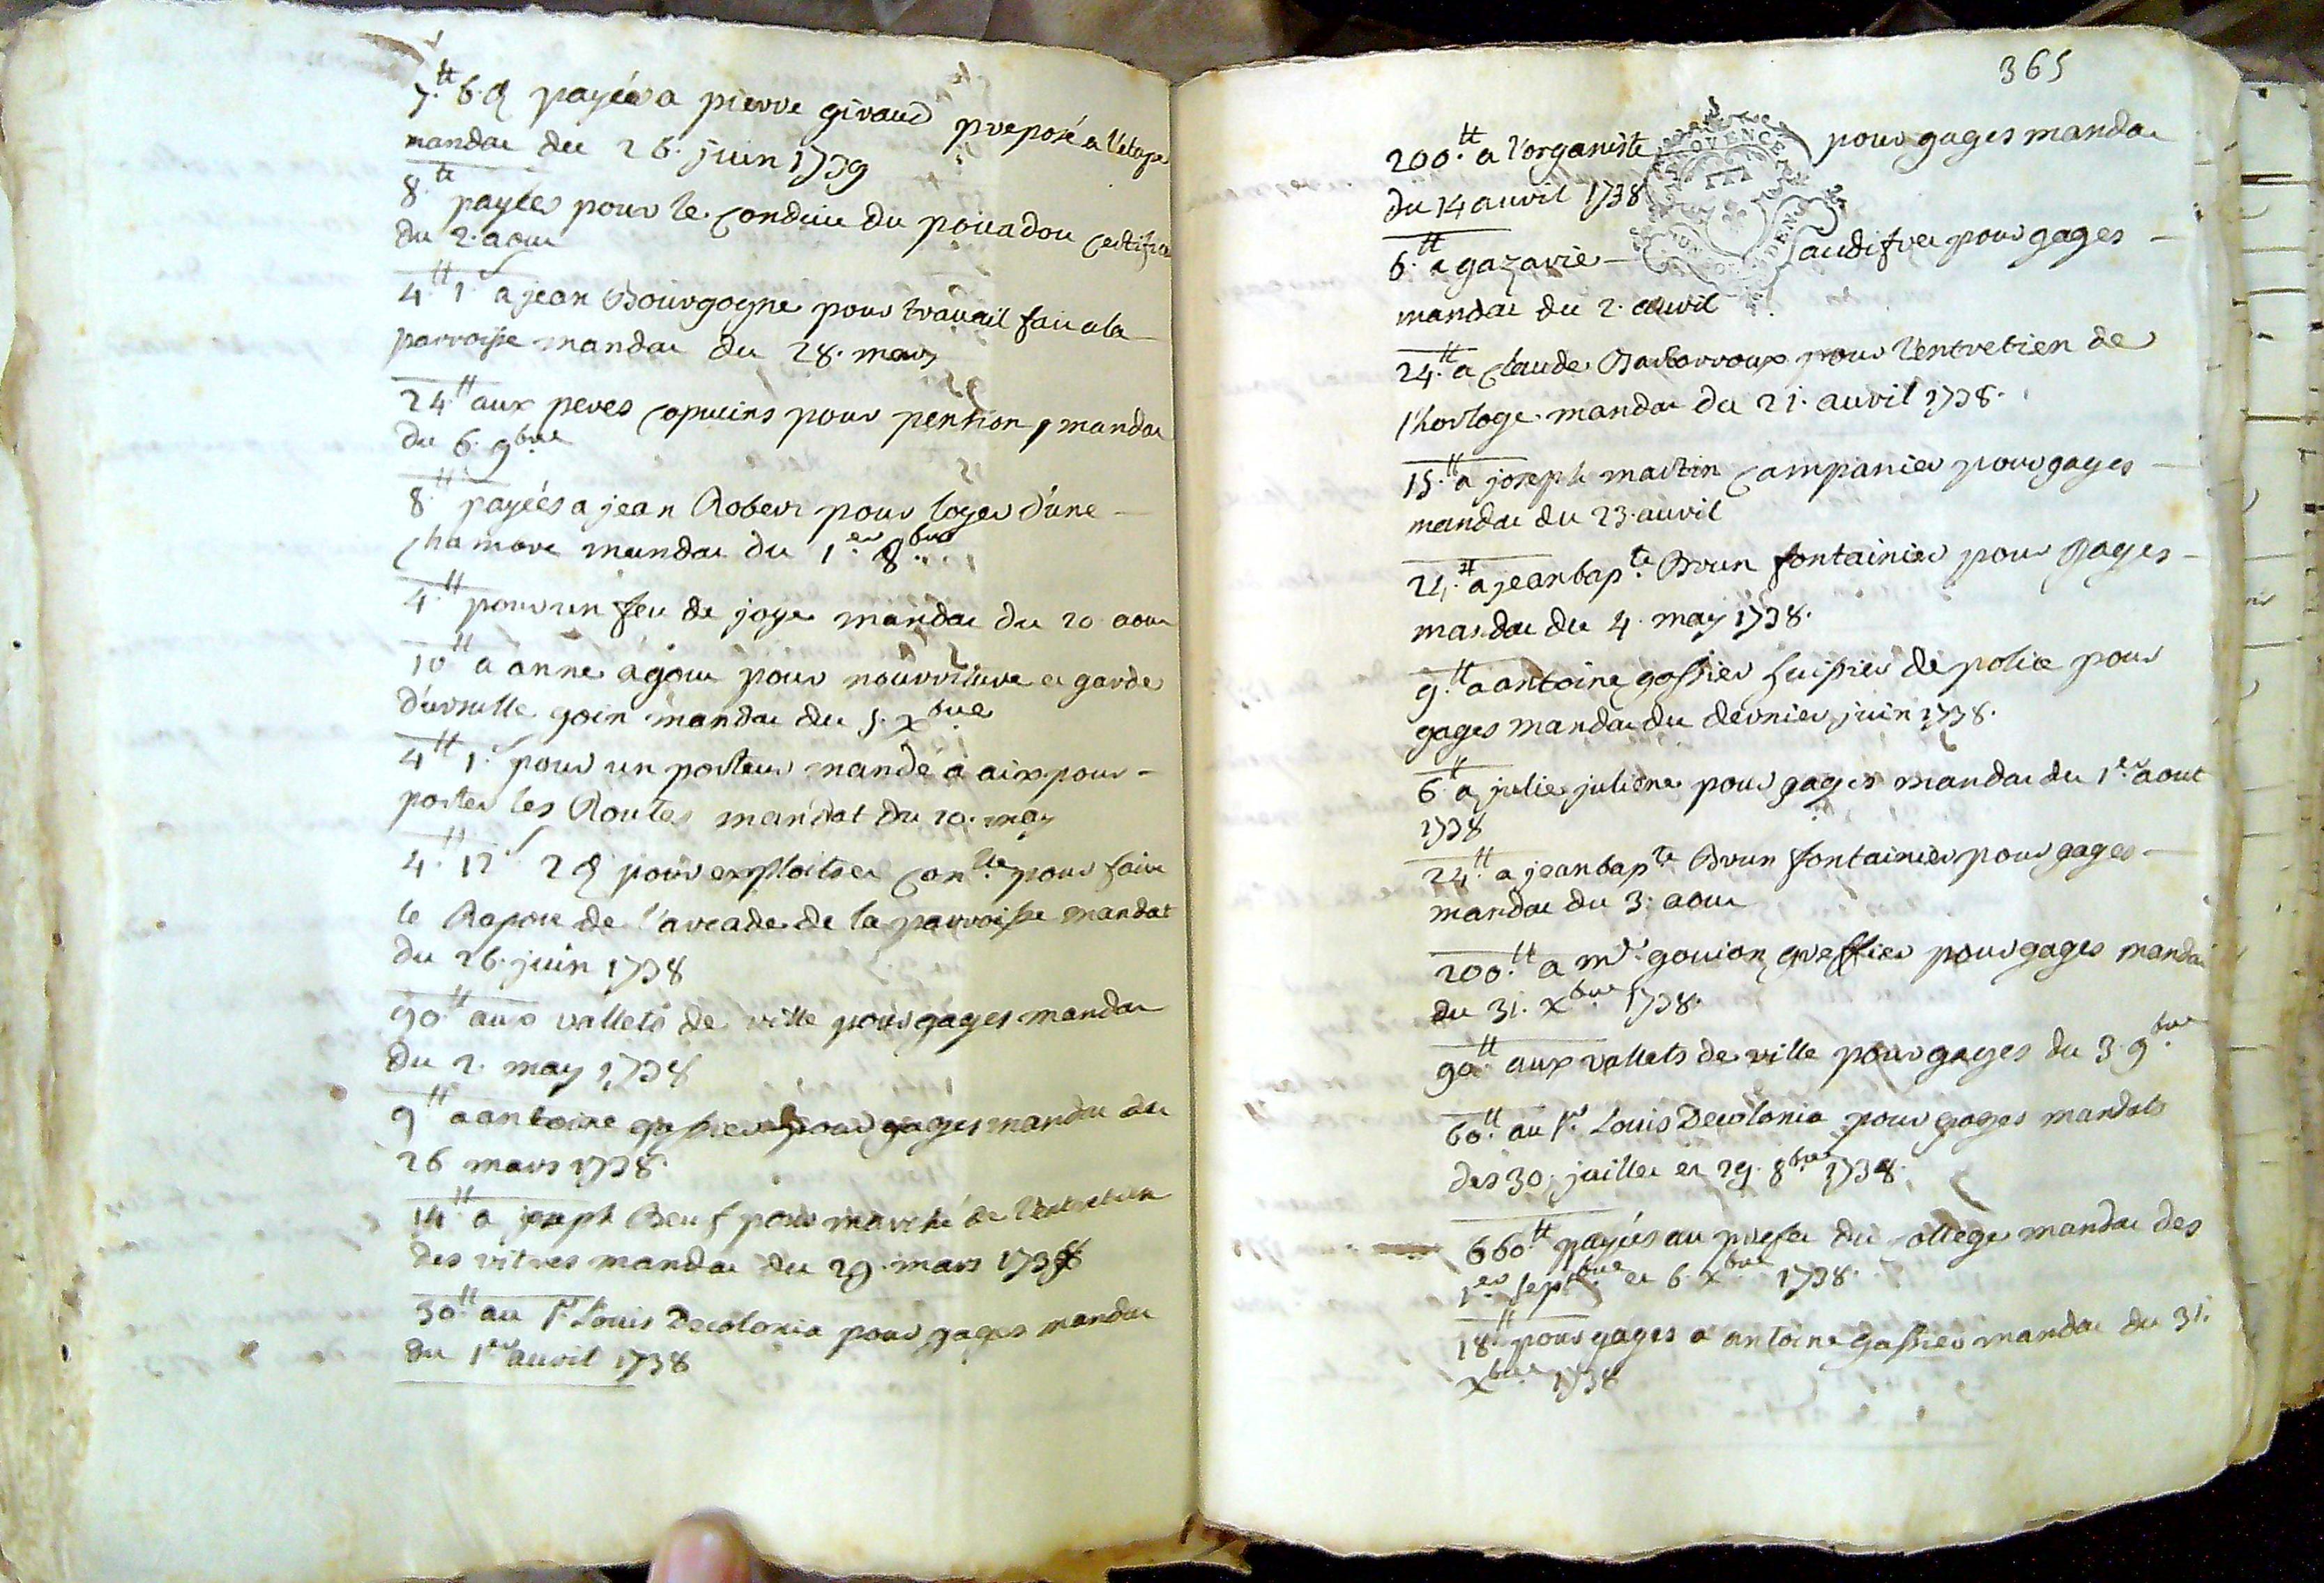 7.tt 6.d payées a pierre giraud preposé a l'etape
mandat du 26. juin 1739
8.tt payées pour le conduit du certificat
du 2. aout
4.tt 1.s a jean Bourgogne pour travail fait a la
parroisse mandat du 28. mars
24.tt aux peres capucins pour pention, mandat
du 6. 9bre
8.tt payées a jean Robert pour loyer d'une
chambre mandat du 1.er 8bre
4.tt pour un feu de joye mandat du 20 aout
10.tt a anne agout pour nourriture et garde
d'ursulle goin mandat du 5. xbre
4.tt 1.s pour un porteur mandé a aix pour
porter les Routes mandat du 20. may
4.tt 12.s 2 d pour exploits et pour faire
le Raport de l'arcade de la parroisse mandat
du 26. juin 1738
90.tt aux vallets de ville pour gages mandat
du 2. may 1738
9.tt a antoine gassier pour gages mandat du
26 mars 1738.
14.tt a joseph Beuf pour marché de l'entretien
des vitres mandat du 29. mars 1738
30.tt au sr. Louis Decolonia pour gages mandat
du 1.er avril 1738
365
200.tt a l'organiste pour gages mandat
du 14 avril 1738
PROVENCE
6.tt a gazarie audifret pour gages
mandat du 2. avril
24.tt a claude Barbarroux pour l'entretien de
l'horloge mandat du 21. avril 1738.
15.tt a joseph martin campanier pour gages
mandat du 23. avril
24.tt a jean bap.te Brun fontainier pour gages
mandat du 4. may 1738.
9.tt a antoine gassier huissier de police pour
gages mandat du dernier juin 1738.
6.tt a julie juliene pour gages mandat du 1.er aout
1738
24.tt a jean bap.te Brun fontainier pour gages
mandat du 3. aout
200.tt a mr. gouion greffier pour gages mandat
du 31. xbre 1738.
90.tt aux vallets de ville pour gages du 3. 9bre
60.tt au sr. Louis Decolonia pour gages mandats
des 30. juillet et 29. 8bre 1738.
660.tt payées au prefet du college mandat des
1.er septbre et 6. xbre 1738.
18.tt pour gages a antoine gassier mandat du 31.
xbre 1738